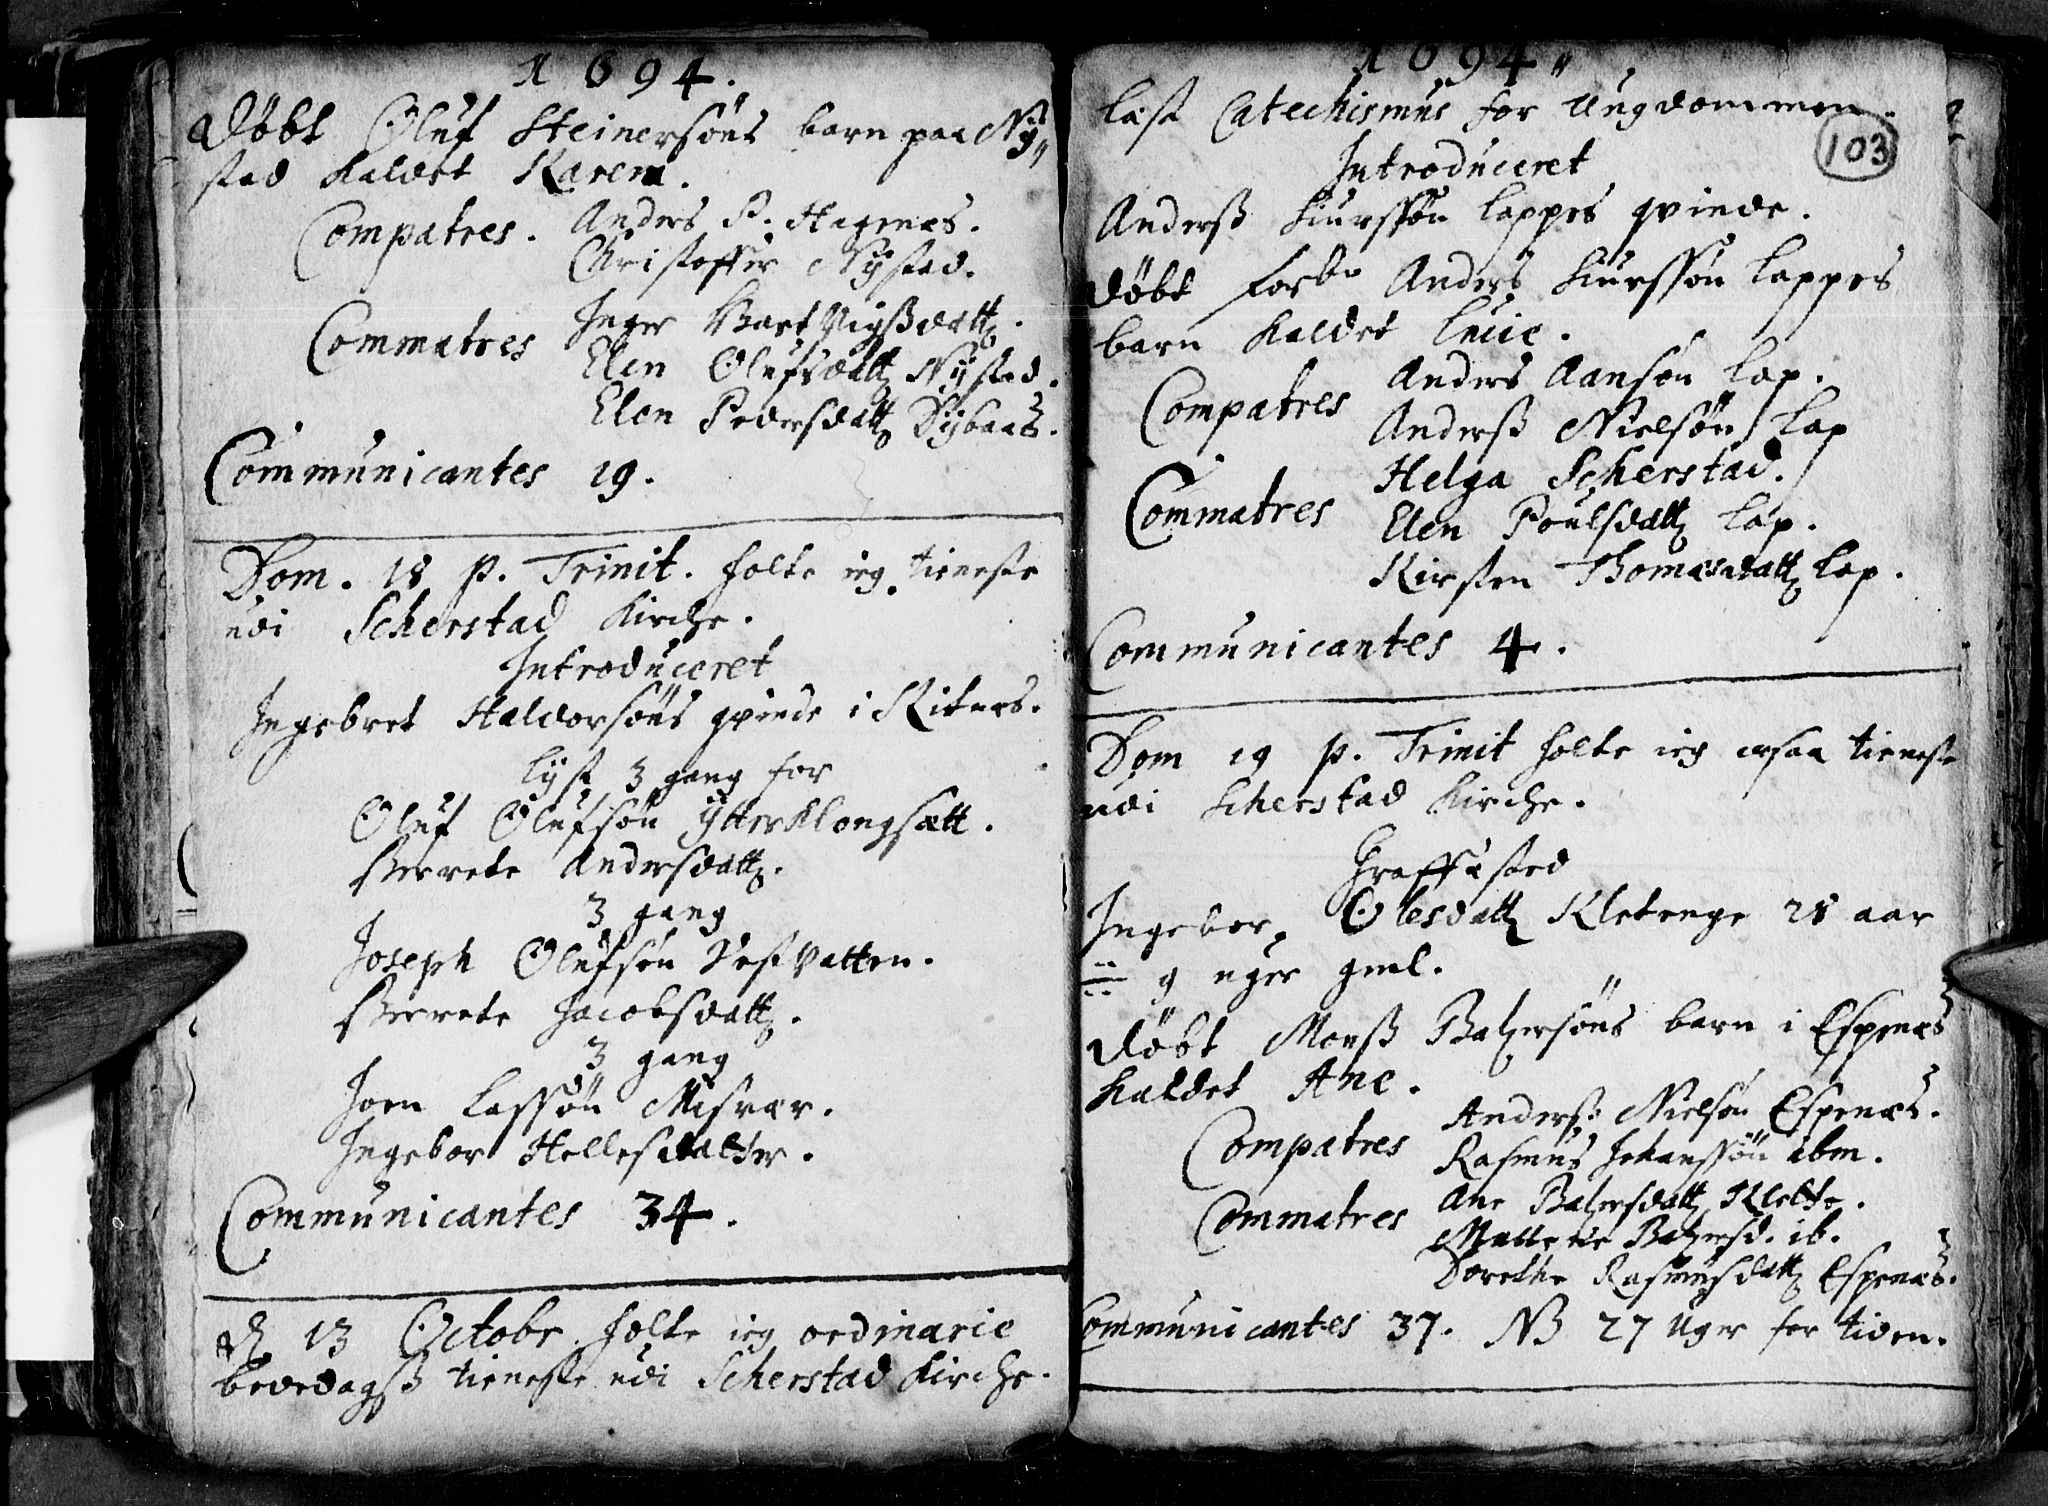 1694.
Døbt Oluf Steinersöns barn paa Nÿ„
stad kaldet Karen.
Compatres. Anders P. Hagenæs.
Christoffer Nÿstad.
Commatres Inger Bart
Elen Olufsdattr Nÿstad.
Elen Pedersdattr Dÿbaas.
Communicantes 19.
Dom. 18 p. Trinit. holte ieg tieneste
udi Scherstad Kirche.
Introduceret
Ingebret Haldorsöns qvinde i Kitnæs.
lÿst 3 gang for
Oluf Olufsön ÿtterKlongsætt.
Berrete Andersdattr.
3 gang
Joseph Olufsön Vestvatten.
Berrete Jacobsdattr.
3 gang
Joen Lassön Misvær.
Ingebor Hellesdatter.
Communicantes 34.
d. 13 Octobr. holte ieg ordinarie
bededagsß tieneste udi Scherstad Kirche.
1694„
103
læst Catechismus for Ungdommen.
Introduceret
Anderß Siurssön Lappes qvinde.
Døbt forbn Anders Siurssön Lappes
barn kaldet Lucie.
Compatres Anders Aansön Lap.
Anderß Nielsön Lap
Commatres Helga Scherstad.
Elen Poulsdattr Lap.
Kirsten Thomasdattr Lap.
Communicantes 4.
Dom 19 p. Trinit holte ieg ocsaa tieneste
udi Scherstad Kirche.
Graffæsted
Ingebor Olesdattr Kletenge 28 aar
9 uger gml.
Døbt Monß Balzersöns barn i Espenæs
kaldet Ane.
Compatres Anderß Nielsön Espenæs.
Rasmus Johanssön ibm.
Commatres Ane Balzersdattr Klette.
Mætte Balzersd. ib.
Dorethe Rasmusdattr Espenæs.
Communicantes 37. NB 27 Uger for tiden.